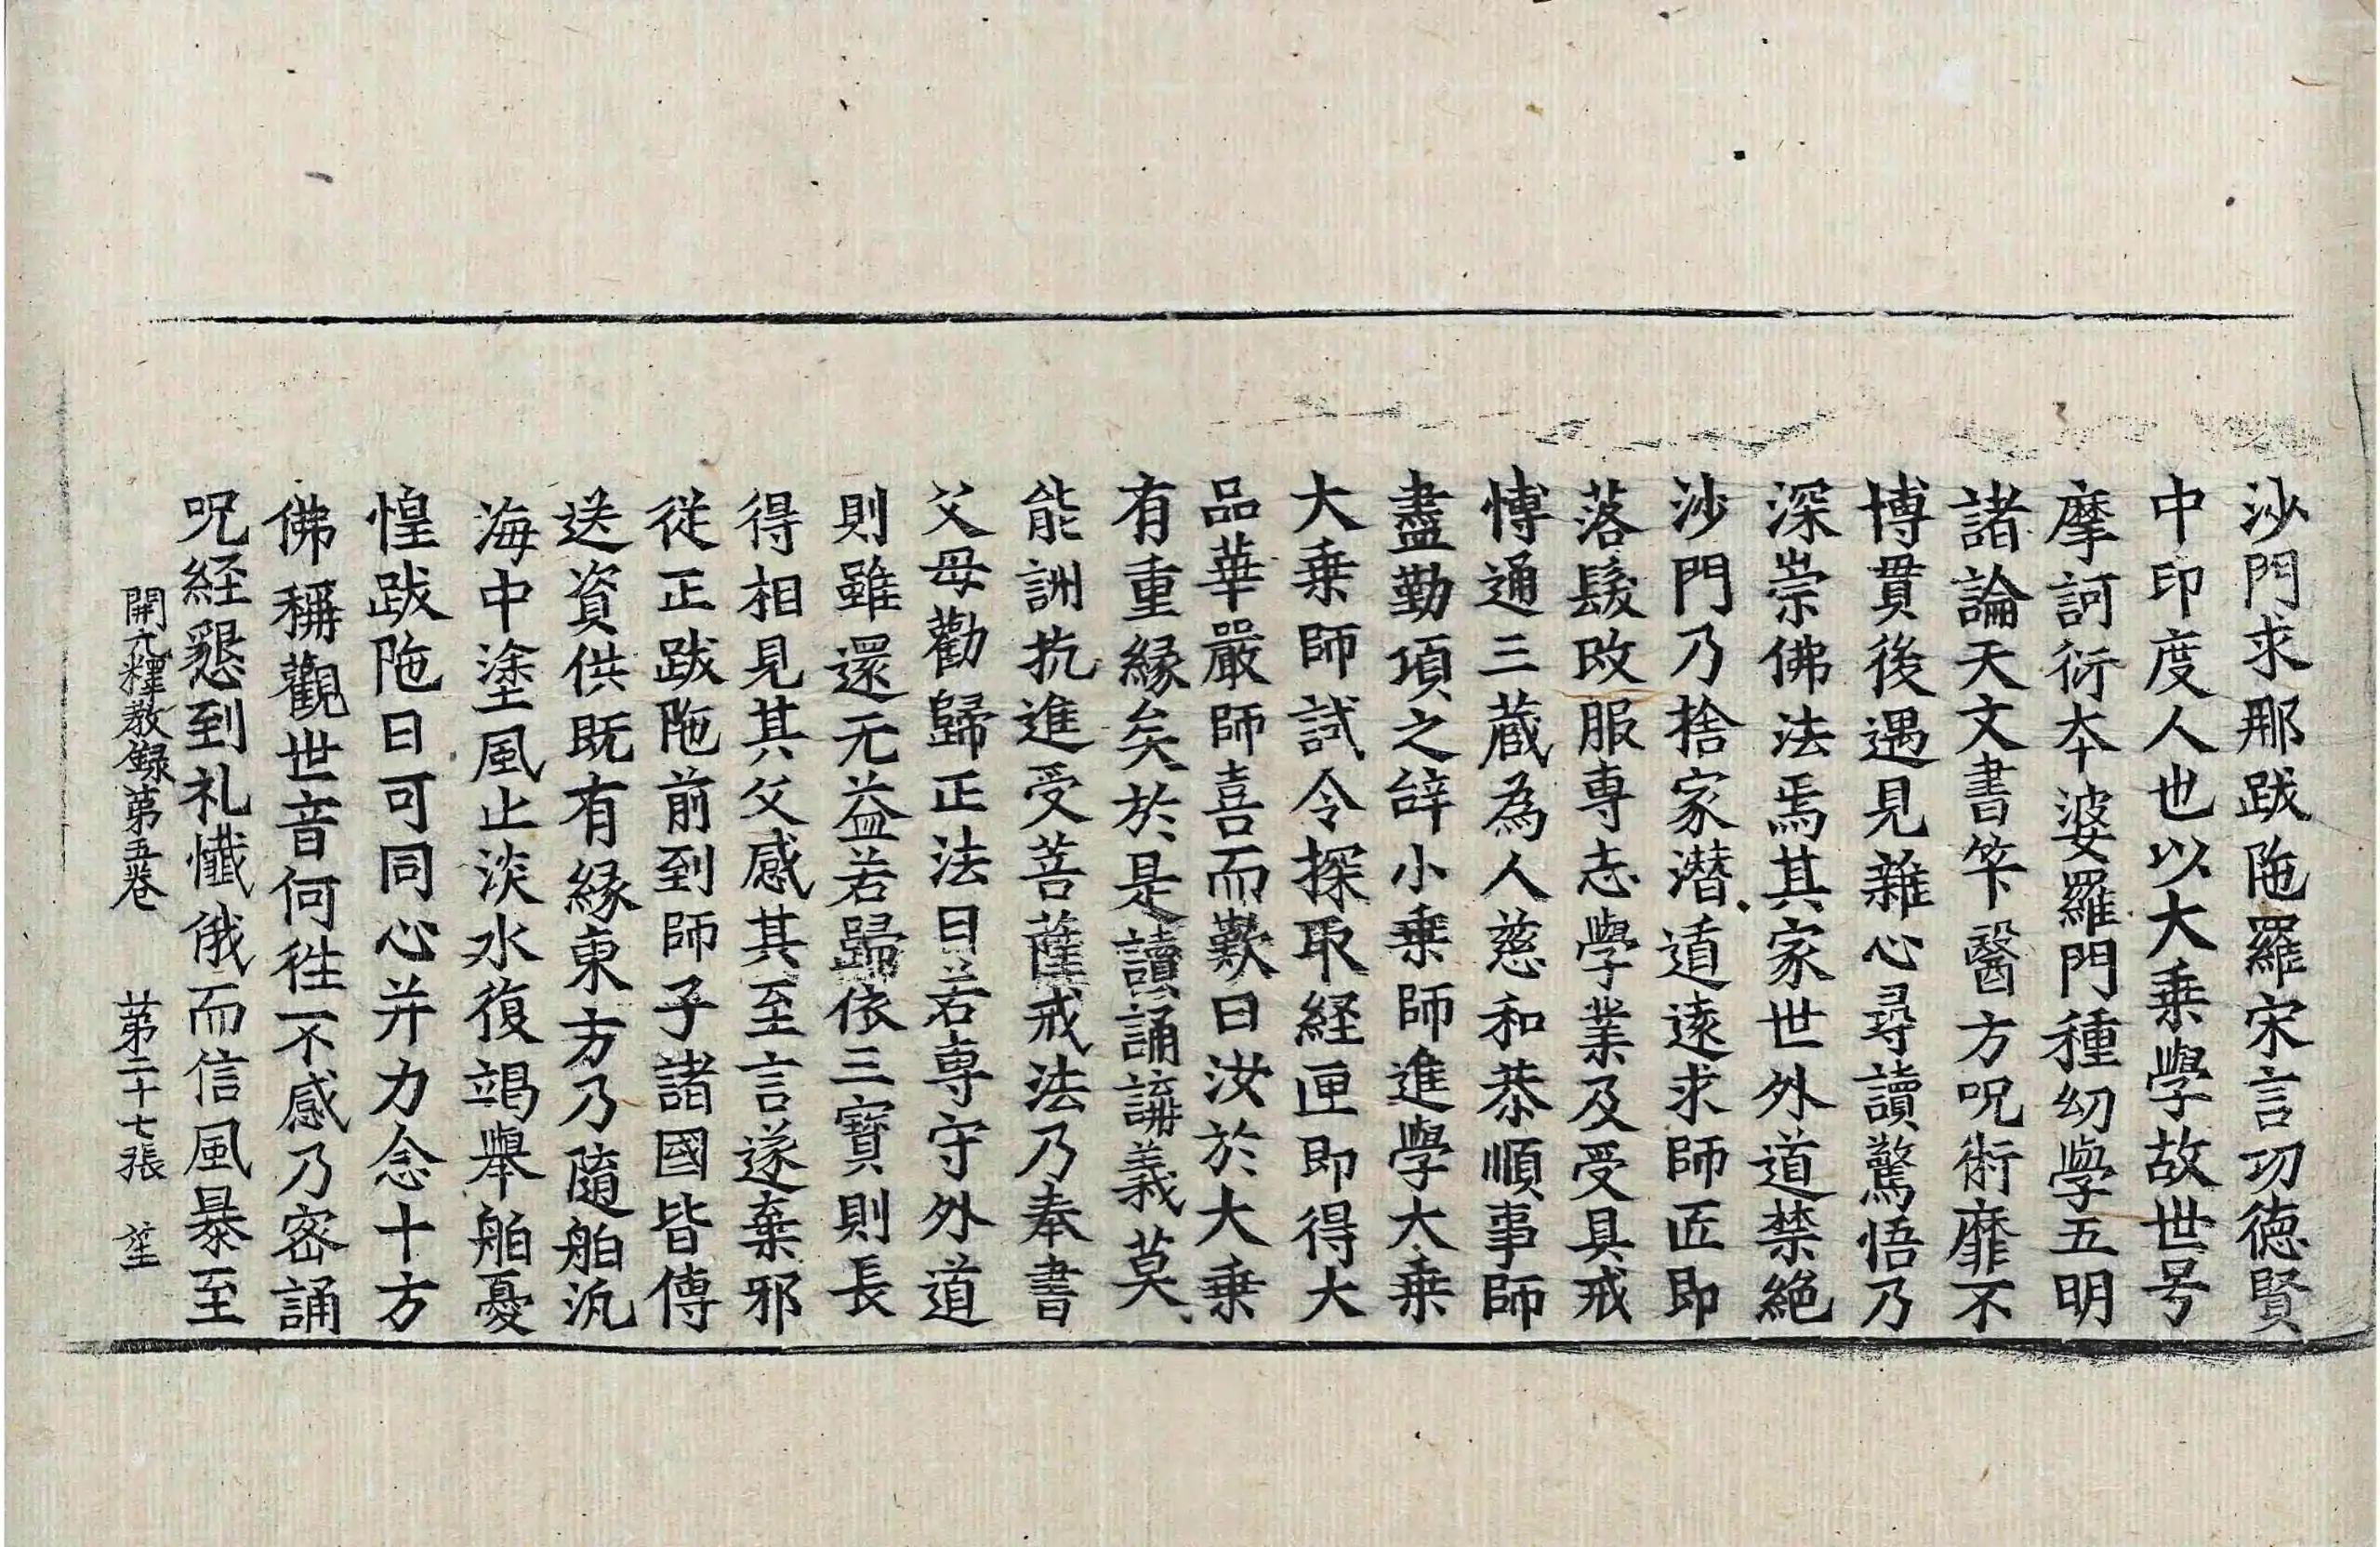 沙門求那跋陁羅宋言功徳賢
中印度人也以大乗學故世号
摩訶衍本婆羅門種幼學五明
諸論天文書筭醫方呪術靡不
博貫後遇見雜心尋讀驚悟乃
深崇佛法焉其家世外道禁絶
沙門乃捨家潜遁逺求師匠即
落髮改服専志學業及受具戒
博通三蔵為人慈和恭順事師
盡勤項之辝小乗師進學大乗
大乗師試令探取経匣即得大
品華嚴師喜而歎曰汝於大乗
有重縁矣於是讀誦講義莫
能詶抗進受菩薩戒法乃奉書
父母勸歸正法曰若専守外道
則雖還无益若歸依三寳則長
得相見其父感其至言遂棄邪
従正跋陁前到師子諸國皆傳
送資供既有縁東方乃隨舶汎
海中塗風止淡水復竭舉舶憂
惶跋陁曰可同心并力念十方
佛稱觀世音何徃不感乃密誦
呪経懇到礼懺俄而信風暴至
開元釋教録第五巻 第二十七張 笙